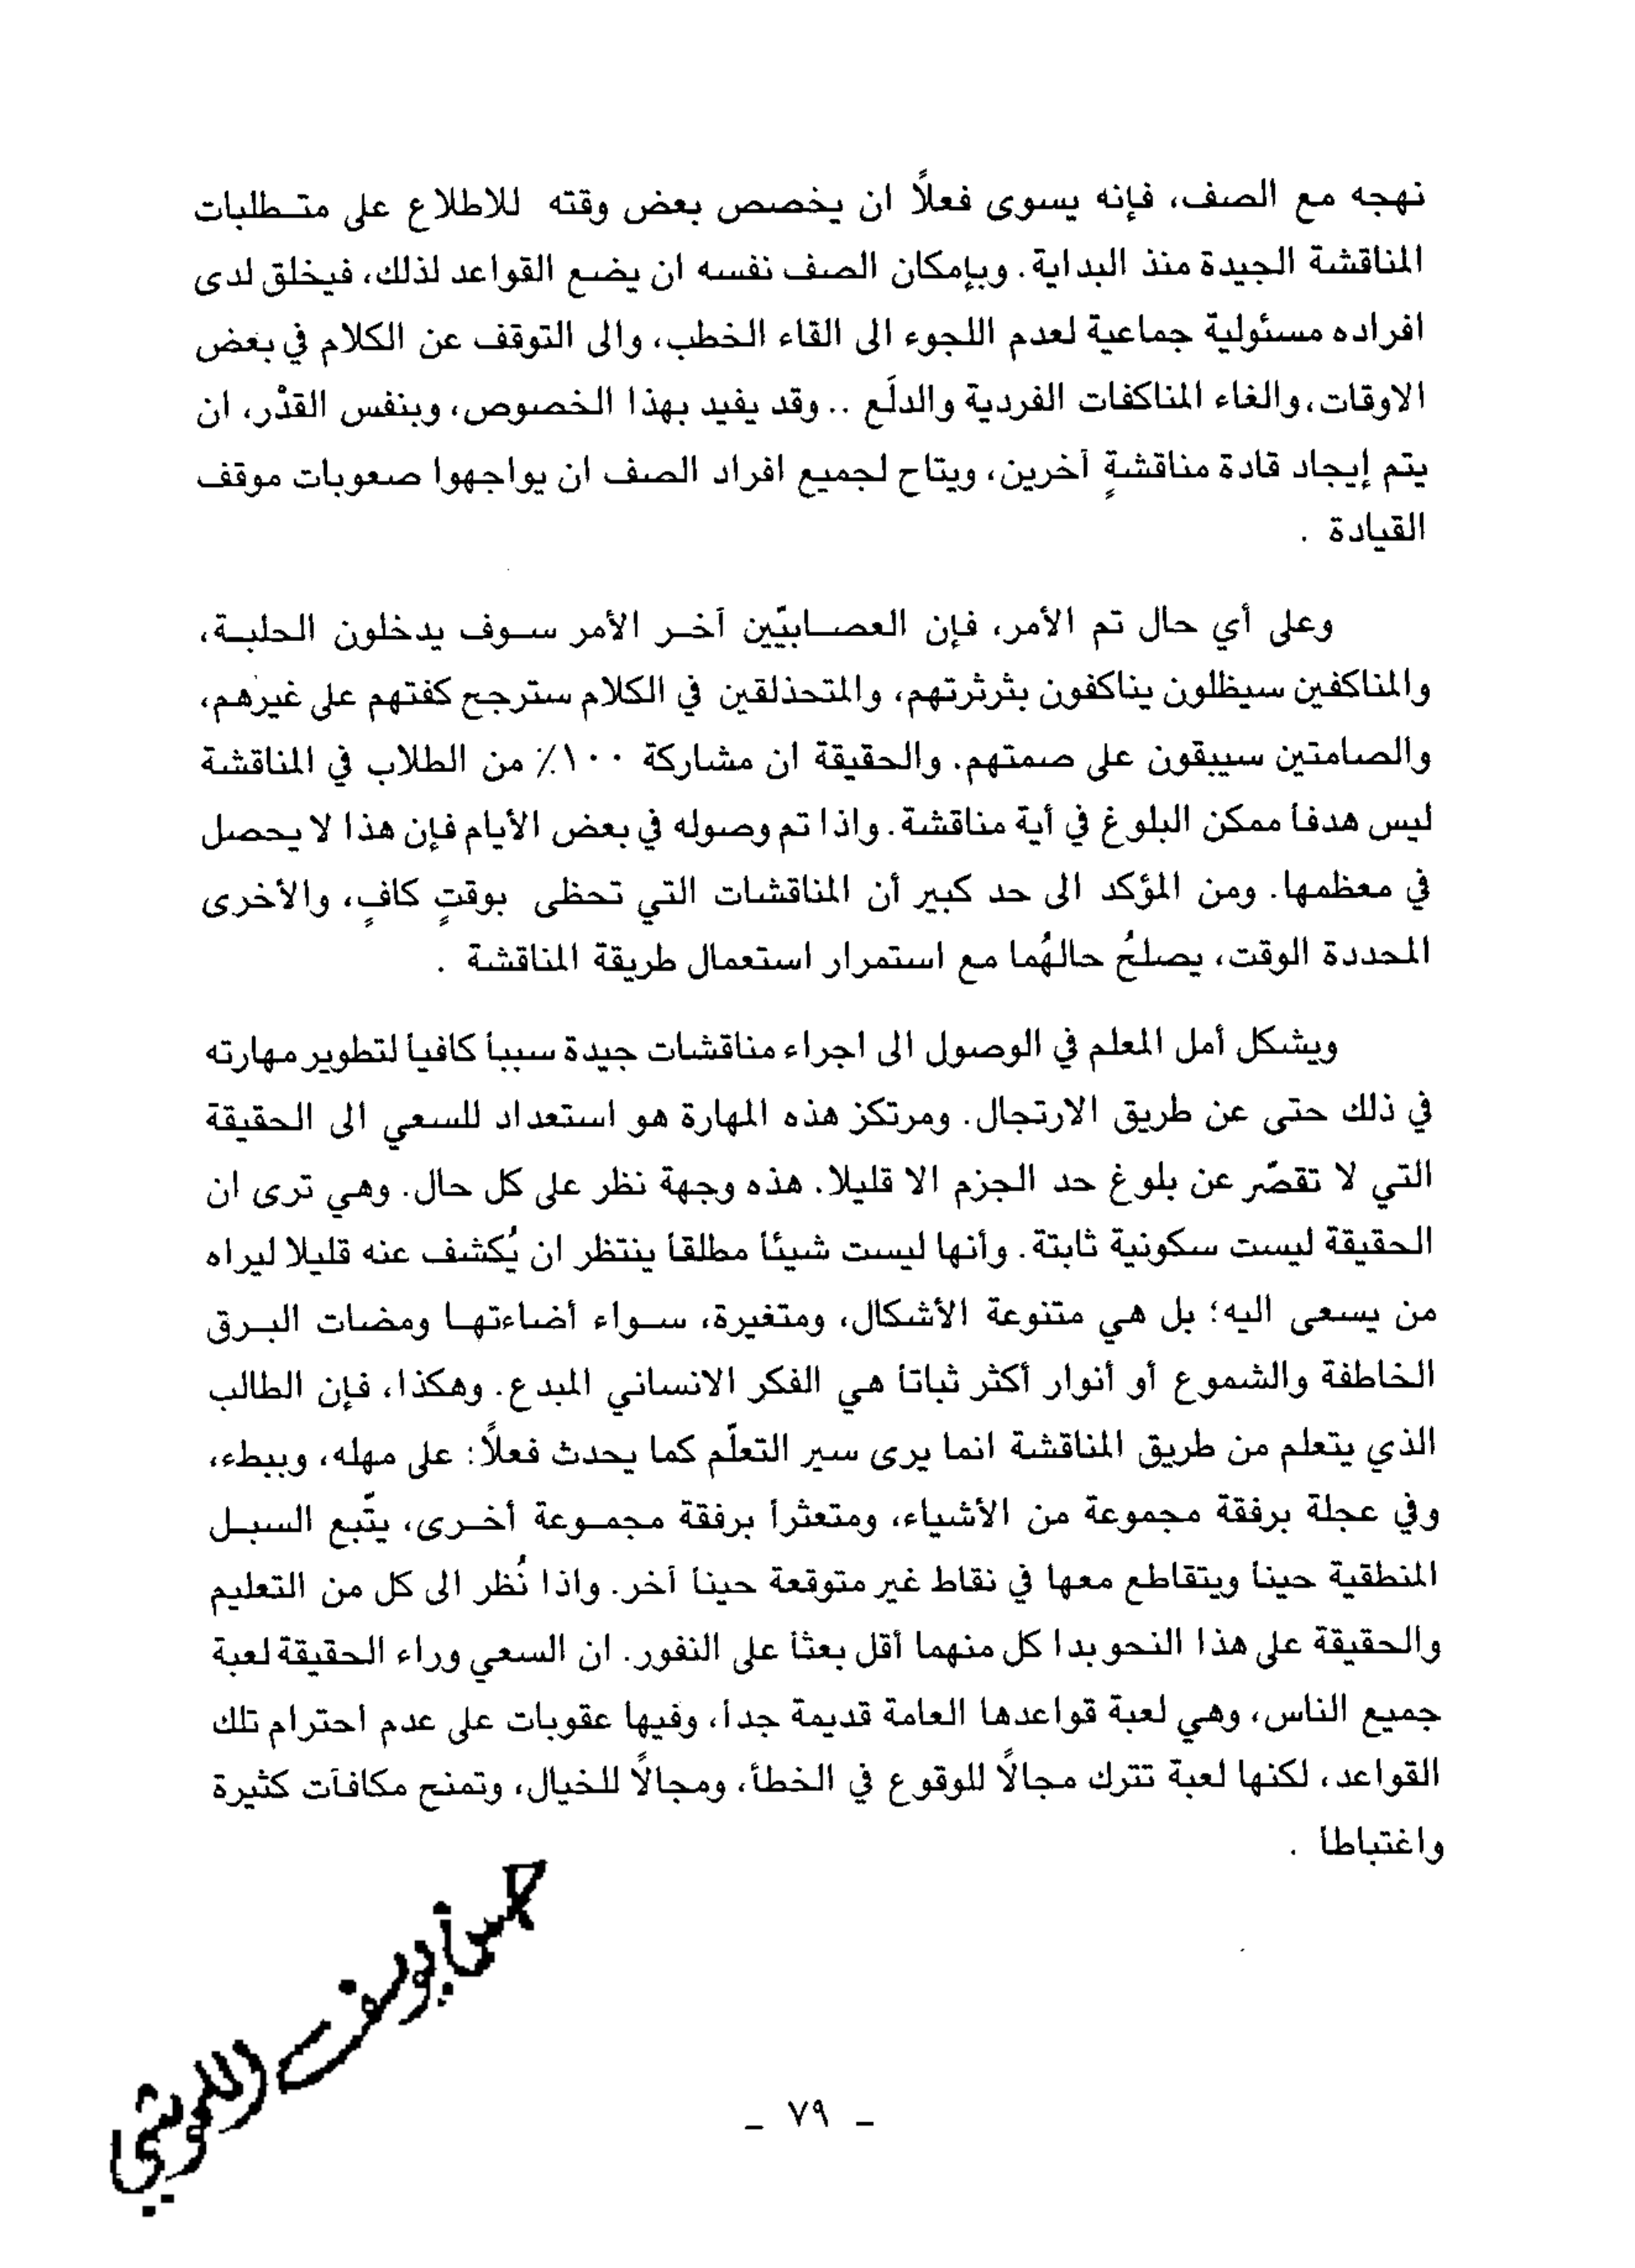 نهجه مع الصف، فإنه يسوى فعلاً ان يخصص بعض وقته للاطلاع على متطلبات
المناقشة الجيدة منذ البداية. وبإمكان الصف نفسه ان يضع القواعد لذلك، فيخلق لدى
افراده مسئولية جماعية لعدم اللجوء الى القاء الخطب، والى التوقف عن الكلام في بعض
الاوقات، والغاء المناكفات الفردية والدلَع .. وقد يفيد بهذا الخصوص، وبنفس القدْر، ان
يتم إيجاد قادة مناقشةٍ آخرين، ويتاح لجميع افراد الصف ان يواجهوا صعوبات موقف
القيادة .
وعلى أي حال تم الأمر، فإن العصابيّين آخر الأمر سوف يدخلون الحلبة،
والمناكفين سيظلون يناكفون بثرثرتهم، والمتحذلقين في الكلام سترجح كفتهم على غيرهم،
والصامتين سيبقون على صمتهم. والحقيقة ان مشاركة ١٠٠٪ من الطلاب في المناقشة
ليس هدفاً ممكن البلوغ في أية مناقشة. واذا تم وصوله في بعض الأيام فإن هذا لا يحصل
في معظمها. ومن المؤكد الى حد كبير أن المناقشات التي تحظى بوقتٍ كافٍ، والأخرى
المحددة الوقت، يصلحُ حالهُما مع استمرار استعمال طريقة المناقشة .
ويشكل أمل المعلم في الوصول الى اجراء مناقشات جيدة سبباً كافياً لتطوير مهارته
في ذلك حتى عن طريق الارتجال. ومرتكز هذه المهارة هو استعداد للسعي الى الحقيقة
التي لا تقصّر عن بلوغ حد الجزم الا قليلا. هذه وجهة نظر على كل حال. وهي ترى ان
الحقيقة ليست سكونية ثابتة. وأنها ليست شيئاً مطلقاً ينتظر ان يُكشف عنه قليلا ليراه
من يسعى اليه؛ بل هي متنوعة الأشكال، ومتغيرة، سواء أضاءتها ومضات البرق
الخاطفة والشموع أو أنوار أكثر ثباتاً هي الفكر الانساني المبدع. وهكذا، فإن الطالب
الذي يتعلم من طريق المناقشة انما يرى سير التعلّم كما يحدث فعلاً: على مهله، وببطء،
وفي عجلة برفقة مجموعة من الأشياء، ومتعثراً برفقة مجموعة أخرى، يتّبع السبل
المنطقية حيناً ويتقاطع معها في نقاط غير متوقعة حيناً آخر. واذا نُظر الى كل من التعليم
والحقيقة على هذا النحو بدا كل منهما أقل بعثاً على النفور. ان السعي وراء الحقيقة لعبة
جميع الناس، وهي لعبة قواعدها العامة قديمة جداً، وفيها عقوبات على عدم احترام تلك
القواعد، لكنها لعبة تترك مجالاً للوقوع في الخطأ، ومجالاً للخيال، وتمنح مكافآت كثيرة
واغتباطاً .
_ ٧٩ _